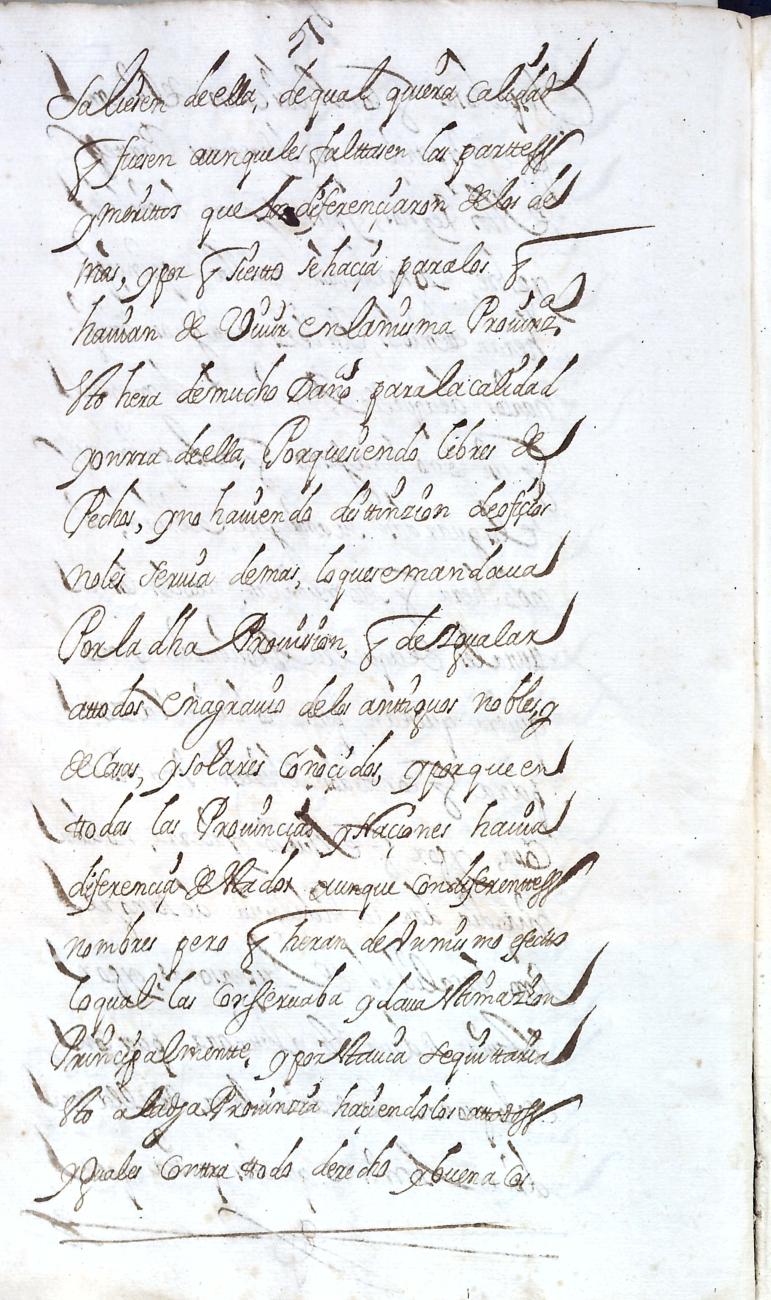 Salieren de ella, de qual quiera Calidad
q fuesen aunque les falttasen las parttess
y merittos que los diferençiaron de los de
mas, y por q siertto se haçia para los q
hauian de Viuir en la misma Prouinzᵃ
Sto hera de mucho Daño para la calidad
y onrra de ella, Porque siendo libres de
Pechos, y no hauiendo disttinzion de ofiçios
nobles seruia demas, lo que se mandaua
Por la dha Prouision, q de Igualar
a ttodos en agrauio de los antiguos nobles, y
de Casas, y solares Conocidos, y porque en
ttodas las Prouincias y Naciones hauia
diferencia de Stados aunque Con diferenttess
nombres pero q heran de Vn mismo efecto
lo qual las Conseruaba y daua Stimazion
Prinçipalmentte, y por Staucia se quittaria
Sto a la dha Prouinzia haçiendolos a ttodoss
yguales Conttra ttodo derecho y buena Cos